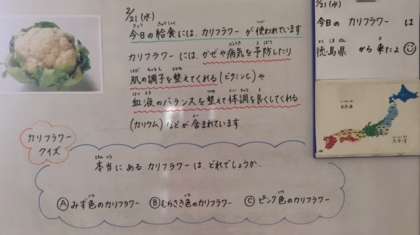 2/21(水)
今日の給食には、カリフラワーが使われています
カリフラワーには、かぜや病気を予防したり
肌の調子を整えてくれる(ビタミンC)や
血液のバランスを整えて体調を良くしてくれる
(カリウム)などが含まれています
カリフラワー
クイズ
本当にあるカリフラワーは、どれでしょうか。
Ⓐみず色のカリフラワー Ⓑむらさき色のカリフラワー Ⓒピンク色のカリフラワー
2/21(水)
今日のカリフラワーは
徳島県から来たよ